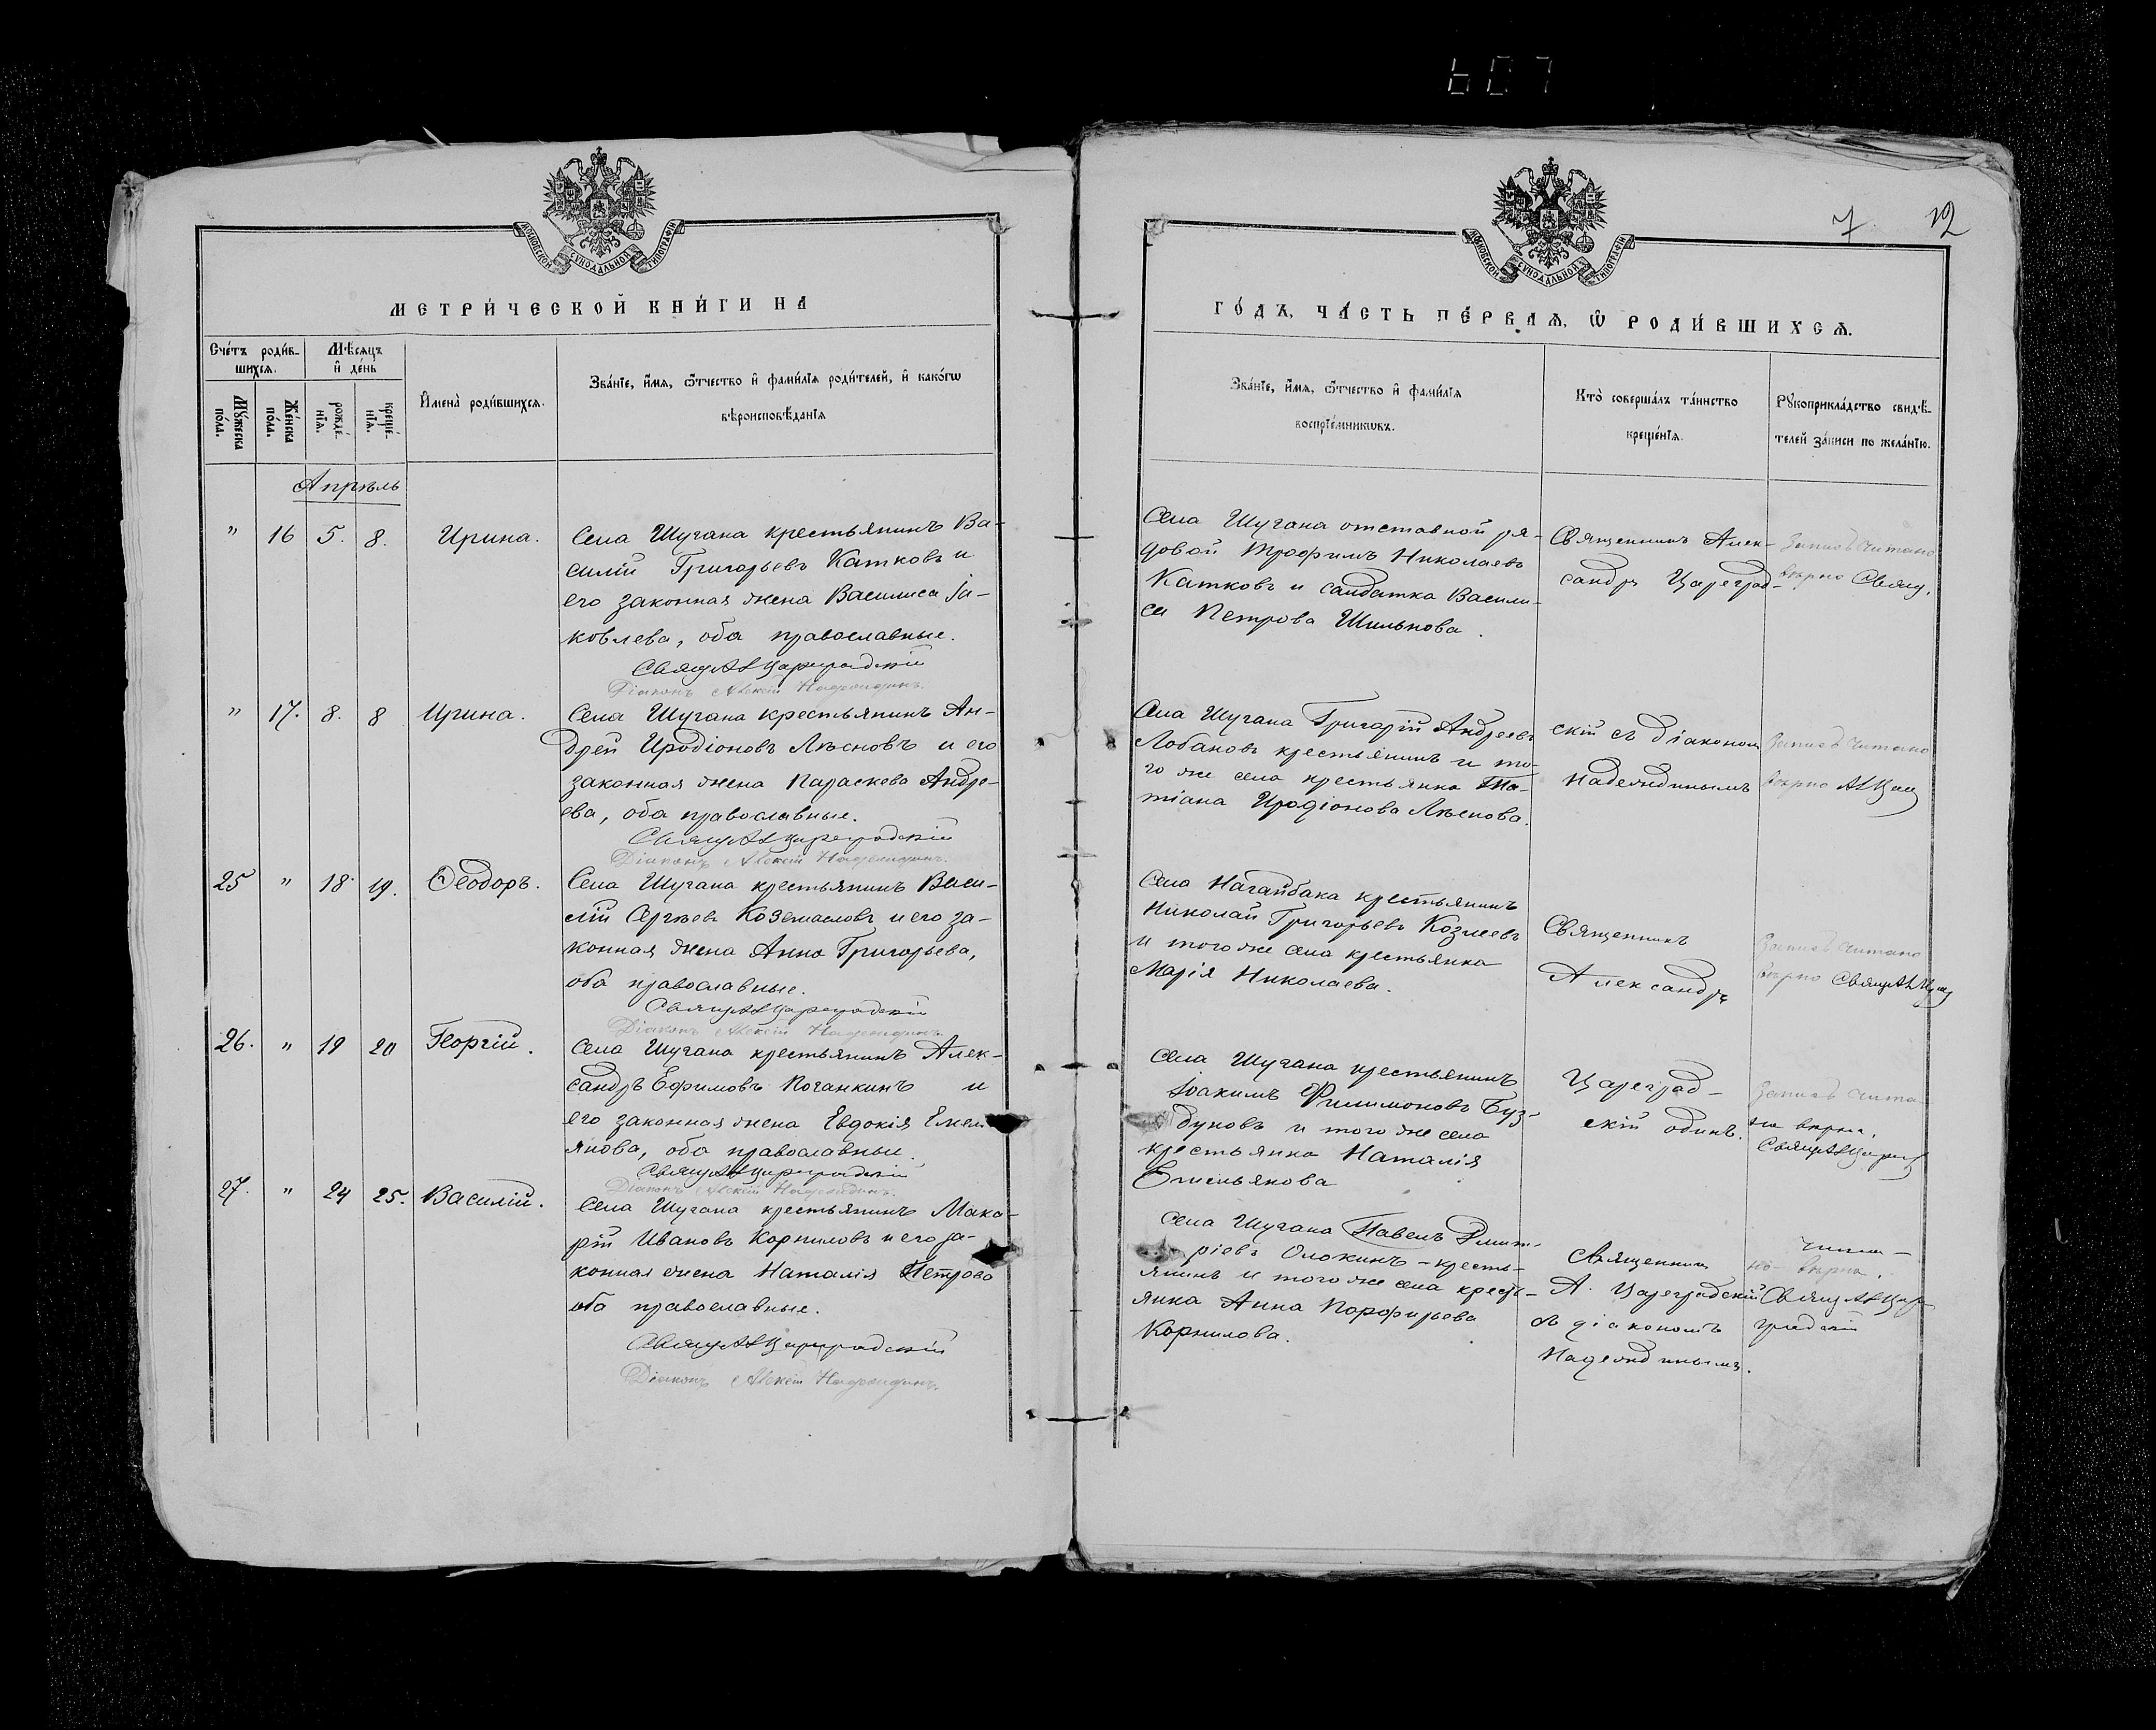 607
МОСКОВСКОЙ СѴНОДАЛЬНОЙ ТИПОГРАФІИ
МЕТРИ́ЧЕСКОЙ КНИ́ГИ НА
Сче́тъ роди́в-
шихсѧ.
Мѣ́сѧцъ
и҆ де́нь
Мꙋ́жеска
по́ла.
Же́нска
по́ла.
рожде́-
нїѧ.
креще́-
нїѧ.
И҆мена̀ роди́вшихсѧ.
Зва́нїе, и҆́мѧ, ѻ҆́тчество и҆ фами́лїѧ роди́телей, и҆ како́гѡ
вѣроисповѣ́данїѧ
Апрѣль
" 16 5. 8. Ирина.
Села Шугана крестьянинъ Ва-
силій Григорьевъ Катковъ и
его законная жена Василиса Іа-
ковлева, оба православные.
Свящ Ал Цареградскій
Діаконъ Алексій Надеждинъ.
" 17. 8. 8 Ирина.
Села Шугана крестьянинъ Ан-
дрей Иродіоновъ Лѣсновъ и его
законная жена Параскева Андре-
ева, оба православные.
Свящ Ал Цареградскій
Діаконъ Алексій Надеждинъ.
25 " 18. 19. Ѳеодоръ.
Села Шугана крестьянинъ Васи-
лій Сергѣевъ Коземасловъ и его за-
конная жена Анна Григорьева,
оба православные.
Свящ Ал Цареградскій
Діаконъ Алексій Надеждинъ.
26. " 19 20 Георгій.
Села Шугана крестьянинъ Алек-
сандръ Ефимовъ Поганкинъ и
его законная жена Евдокія Емель
янова, оба православные.
Свящ Ал Цареградскій
Діаконъ Алексій Надеждинъ.
27. " 24 25. Василій.
Села Шугана крестьянинъ Мака-
рій Ивановъ Корниловъ и его за-
конная жена Наталія Петрова
оба православные.
Свящ Ал Цареградскій
Діаконъ Алексій Надеждинъ.
7. 12
МОСКОВСКОЙ СѴНОДАЛЬНОЙ ТИПОГРАФІИ
ГО́ДЪ, ЧА́СТЬ ПЕ́РВАѦ, Ѡ҆ РОДИ́ВШИХСѦ.
Зва́нїе, и҆́мѧ, ѻ҆́тчество и҆ фами́лїѧ
воспрїе́мникѡвъ.
Кто̀ соверша́лъ та́инство
креще́нїѧ.
Рꙋкоприкла́дство свидѣ́-
телей за́писи по жела́нїю.
Села Шугана отставной ря-
довой Трофимъ Николаевъ
Катковъ и солдатка Васили-
са Петрова Шилькова.
Священникъ Алек-
сандръ Цареград-
Запись читана
вѣрно Свящ.
Села Шугана Григорій Андреевъ
Лобановъ крестьянинъ и то-
го же села крестьянка Та-
тіана Иродіонова Лѣснова.
скій съ діакономъ
Надеждинымъ
Запись читана
вѣрно Ал Цар
Села Нагайбака крестьянинъ
Николай Григорьевъ Козмеевъ
и того же села крестьянка
Марія Николаева.
Священникъ
Александръ
Запись читана
вѣрно Свящ Ал Цар
Села Шугана крестьянинъ
Іоакимъ Филимоновъ Буз-
дуновъ и того же села
крестьянка Наталія
Емельянова
Цареград-
скій одинъ.
Запись чита-
на вѣрна.
Свящ Ал Цар
Села Шугана Павелъ Дмит-
ріевъ Оложинъ - кресть-
янинъ и того же села кресть-
янка Анна Порфирьева
Корнилова.
Священникъ
А. Цареградскій
съ діакономъ
Надеждинымъ.
Чита-
но вѣрна.
Свящ Ал Царе-
градскій